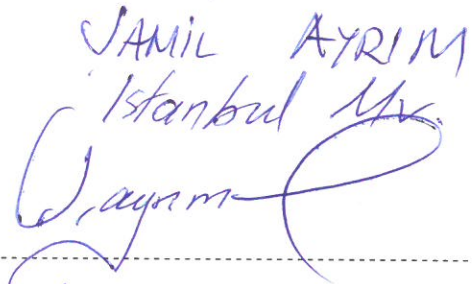 JAMİL AYRIM
Istanbul Mv.
J.ayrım